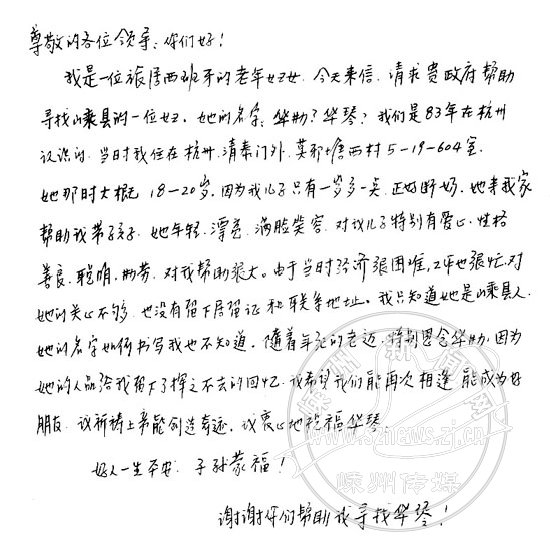 尊敬的各位领导:你们好!
我是一位旅居西班牙的老年妇女,今天来信,请求贵政府帮助
寻找嵊县的一位女,她的名字:华勤?华琴?我们是83年在杭州
认识的,当时我住在杭州,清泰门外,莫邪塘西村5-19-604室.
她那时大概18-20岁,因为我儿子只有一岁多一点,正好断奶,她来我家
帮助我带孩子.她年轻.漂亮.满脸笑容.对我儿子特别有爱心.性格
善良.聪明.勤劳.对我帮助很大。由于当时经济很困难,工作也很忙.对
她的关心不够.也没有留下居留证和联系地址。我只知道她是嵊县人.
她的名字如何书写我也不知道。随着年龄的老迈.特别思念华勤,因为
她的人品给我留下了挥之不去的回忆.我希望我们能再次相逢 能成为好
朋友.我祈祷上帝能创造奇迹.我衷心地祝福华琴.
好人一生平安.子孙蒙福!
谢谢你们帮助我寻找华琴!
嵊州新闻网
www.sznews.zj.cn
嵊州传媒